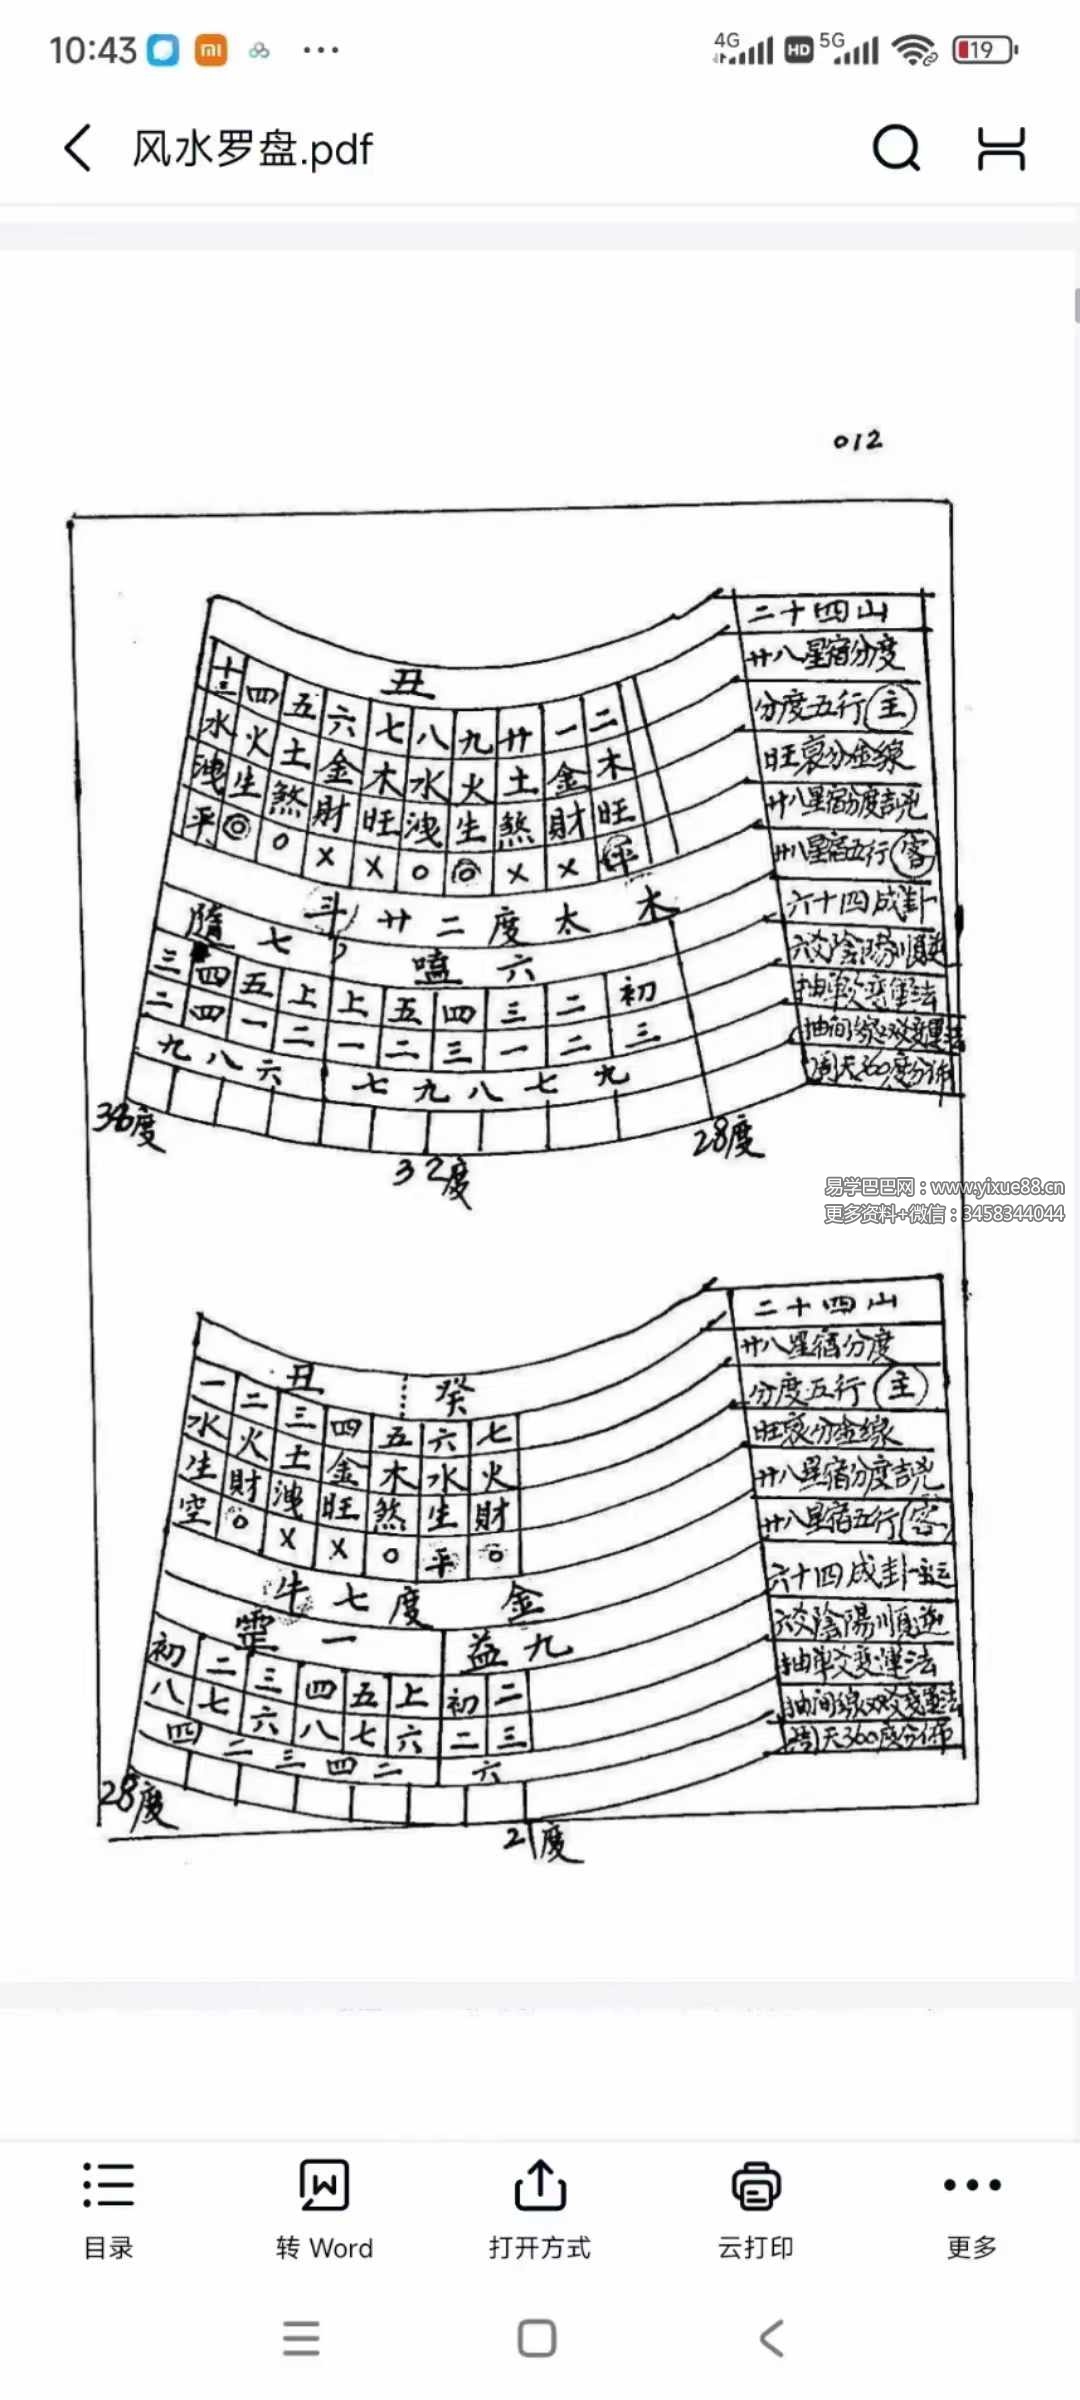 10:43
4G HD 5G 19
风水罗盘.pdf
012
丑
十三 四 五 六 七 八 九 廿 一 二
水 火 土 金 木 水 火 土 金 木
洩 生 煞 財 旺 洩 生 煞 財 旺
平 ◎ ○ × × ○ ◎ × × 平
斗 廿二度太 木
隨 七 嗑 六
三 四 五 上 上 五 四 三 二 初
二 四 一 二 一 二 三 一 二 三
九 八 六 七 九 八 七 九
38度 32度 28度
二十四山
廿八星宿分度
分度五行 主
旺衰分金線
廿八星宿分度吉凶
廿八星宿五行 客
六十四成卦
六爻陰陽順逆
抽單爻變運法
抽间線双爻變運法
周天360度分佈
易学巴巴网：www.yixue88.cn
更多资料+微信：3458344044
丑 癸
一 二 三 四 五 六 七
水 火 土 金 木 水 火
生 財 洩 旺 煞 生 財
空 ○ × × ○ 平 ○
牛 七 度 金
霍 一 益 九
初 二 三 四 五 上 初 二
八 七 六 八 七 六 二 三
四 二 三 四 二 六
28度 21度
二十四山
廿八星宿分度
分度五行 主
旺衰分金線
廿八星宿分度吉凶
廿八星宿五行 客
六十四成卦運
六爻陰陽順逆
抽單爻變運法
抽间線双爻變運法
周天360度分佈
目录
转 Word
打开方式
云打印
更多